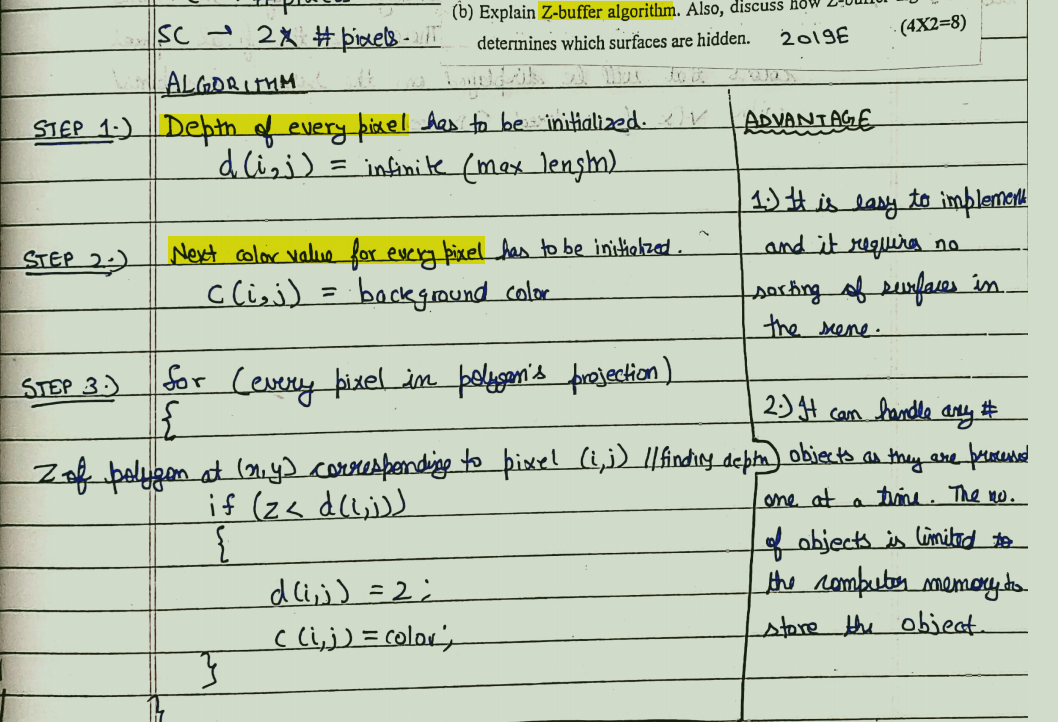 SC → 2 x # pixels.
(b) Explain Z-buffer algorithm. Also, discuss how
determines which surfaces are hidden. 2019E (4X2=8)
ALGORITHM
STEP 1.) Depth of every pixel has to be initialized.
d(i,j) = infinite (max length)
STEP 2.) Next color value for every pixel has to be initialized.
C(i,j) = background color
STEP 3.) for (every pixel in polygon's projection)
{
Z of polygon at (x,y) corresponding to pixel (i,j) //finding depth)
if (z < d(i,j))
{
d(i,j) = 2;
c(i,j) = color;
}
}
ADVANTAGE
1.) It is easy to implement
and it requires no
sorting of surfaces in
the scene.
2.) It can handle any #
objects as they are
one at a time. The no.
of objects is limited to
the computer memory to
store the object.